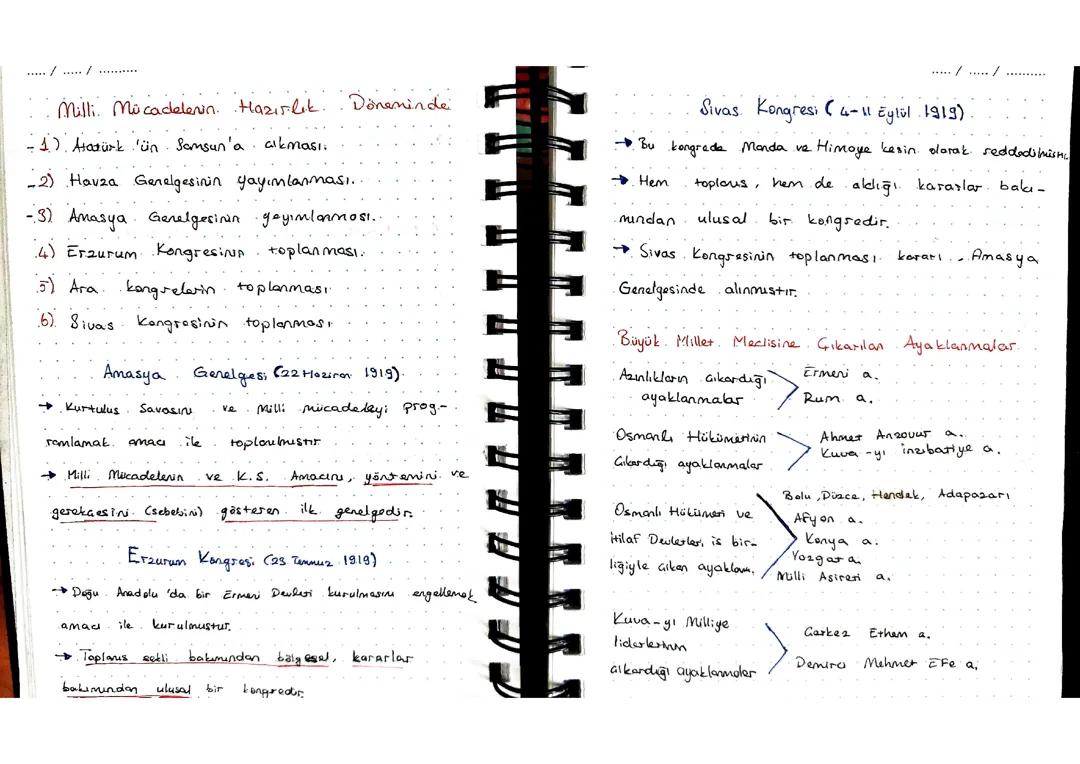 ..... / ..... / ..........
Milli Mücadelenin Hazırlık Döneminde
-1) Atatürk 'ün Samsun'a çıkması.
-2) Havza Genelgesinin yayımlanması.
-3) Amasya Genelgesinin yayımlanması.
4) Erzurum Kongresinin toplanması.
5) Ara kongrelerin toplanması
6) Sivas Kongresinin toplanması
Amasya Genelgesi (22 Haziran 1919)
→ Kurtuluş Savaşını ve Milli mücadeleyi prog-
ramlamak amacı ile toplanılmıştır
→ Milli Mücadelenin ve K.S. Amacını, yöntemini ve
gerekçesini (sebebini) gösteren ilk genelgedir.
Erzurum Kongresi (23 Temmuz 1919)
→ Doğu Anadolu 'da bir Ermeni Devleti kurulmasını engellemek
amacı ile kurulmuştur.
→ Toplanış şekli bakımından bölgesel, kararlar
bakımından ulusal bir kongredir.
..... / ..... / ..........
Sivas Kongresi (4-11 Eylül 1919)
→ Bu kongrede Manda ve Himaye kesin olarak reddedilmiştir.
→ Hem toplanış, hem de aldığı kararlar bakı-
mından ulusal bir kongredir.
→ Sivas Kongresinin toplanması kararı Amasya
Genelgesinde alınmıştır.
Büyük Millet Meclisine Çıkarılan Ayaklanmalar
Azınlıkların çıkardığı ayaklanmalar
Ermeni a.
Rum a.
Osmanlı Hükümetinin
Çıkardığı ayaklanmalar
Ahmet Anzavur a.
Kuva-yı inzibatiye a.
Osmanlı Hükümeti ve
itilaf Devletleri, iş bir-
liğiyle çıkan ayaklan.
Bolu, Düzce, Hendek, Adapazarı
Afyon a.
Konya a.
Yozgat a.
Milli Aşireti a.
Kuva-yı Milliye
liderlerinin
çıkardığı ayaklanmalar
Çerkez Ethem a.
Demirci Mehmet Efe a.